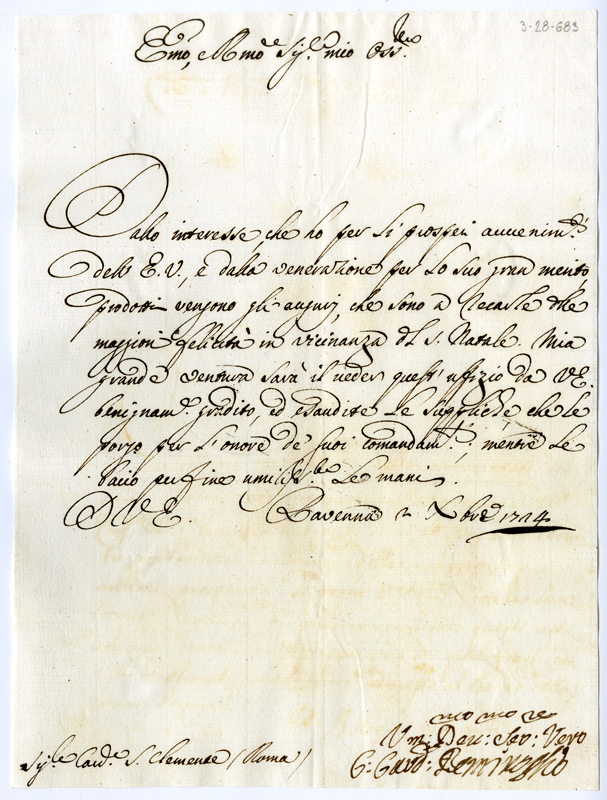 3-28-683
Emo, e Rmo Sig.re mio Oss.mo
Dallo interesse, che ho per li prosperi avvenim.ti
dell' E.V., e dalla venerazione per lo suo gran merito
prodotti vengono gli augurj, che sono a recarle delle
maggiori felicità in vicinanza del S. Natale. Mia
grande ventura sarà il veder quest' uffizio da V.E.
benignam.te gradito, ed esaudite le suppliche che le
porgo per l'onore de' suoi comandam.ti, mentre le
bacio per fine umiliss.te le mani.
D V.E. Ravenna 2 Xbre 1724
mo mo re
Um: Dev: Ser: Vero
C: Card:
Sig.re Card.e S. Clemente (Roma)